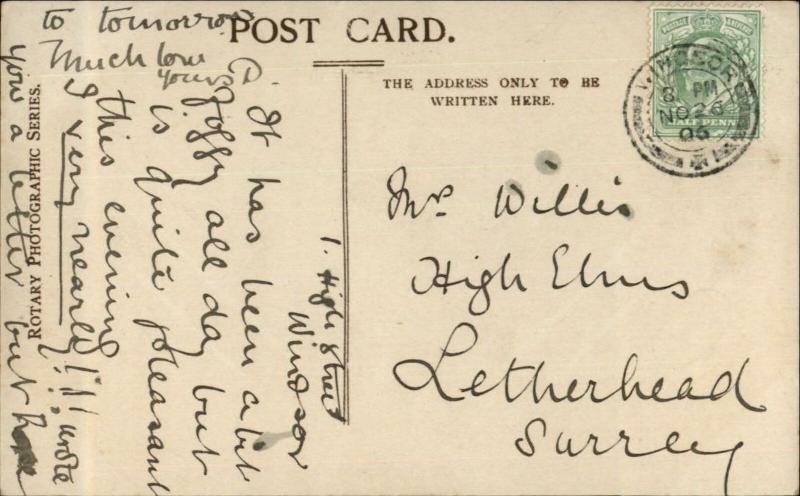 POST CARD.
THE ADDRESS ONLY TO BE
WRITTEN HERE.
WINDSOR
8 PM
NO 26
06
HALF PENNY
Mrs Willis
High Elms
Letherhead
Surrey
1. High Street
Windsor
It has been a bit
foggy all day but
is quite pleasant
this evening
I very nearly!!! wrote
you a letter but
to tomorrow
Much love
yours D.
ROTARY PHOTOGRAPHIC SERIES.